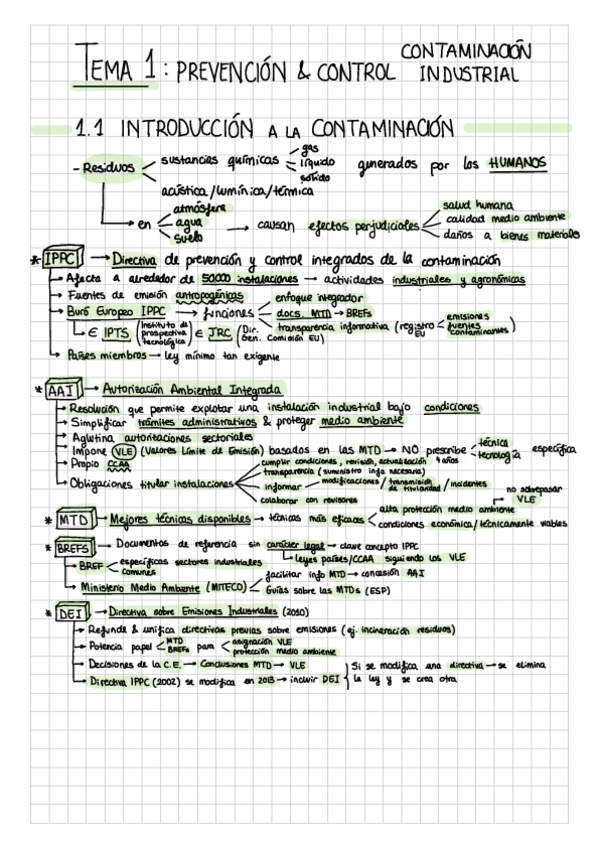 TEMA 1: PREVENCIÓN & CONTROL CONTAMINACIÓN INDUSTRIAL
1.1 INTRODUCCIÓN A LA CONTAMINACIÓN
- Residuos < sustancias químicas < gas líquido sólido generados por los HUMANOS
acústica/lumínica/térmica
→ en < atmósfera agua suelo → causan efectos perjudiciales < salud humana calidad medio ambiente daños a bienes materiales
* IPPC → Directiva de prevención y control integrados de la contaminación
→ Afecta a alrededor de 50000 instalaciones → actividades industriales y agronómicas
→ Fuentes de emisión antropogénicas
→ Buró Europeo IPPC → funciones < enfoque integrador
docs. MTD → BREFs
transparencia informativa (registro EU < emisiones fuentes contaminantes)
→ ∈ IPTS (Instituto de prospectiva tecnológica) ∈ JRC (Dir. Gen. Comisión EU)
→ Países miembros → ley mínimo tan exigente
* AAI → Autorización Ambiental Integrada
→ Resolución que permite explotar una instalación industrial bajo condiciones
→ Simplificar trámites administrativos & proteger medio ambiente
→ Aglutina autorizaciones sectoriales
→ Impone VLE (Valores Límite de Emisión) basados en las MTD → NO prescribe < técnica tecnología específica
→ Propio CCAA
→ Obligaciones titular instalaciones < cumplir condiciones, revisión, actualización 4 años
transparencia (suministro info necesaria)
informar - modificaciones/transmisión de titularidad/incidentes
colaborar con revisores
* MTD → Mejores técnicas disponibles → técnicas más eficaces < alta protección medio ambiente → no sobrepasar VLE
condiciones económica/técnicamente viables
* BREFS → Documentos de referencia sin carácter legal → clave concepto IPPC
→ leyes países/CCAA siguiendo los VLE
→ BREF < específicas sectores industriales
comunes
→ Ministerio Medio Ambiente (MITECO) < facilitar info MTD → concesión AAI
Guías sobre las MTDs (ESP)
* DEI → Directiva sobre Emisiones Industriales (2010)
→ Refunde & unifica directivas previas sobre emisiones (ej. incineración residuos)
→ Potencia papel < MTD BREFs para < asignación VLE protección medio ambiente
→ Decisiones de la C.E. → Conclusiones MTD → VLE
→ Directiva IPPC (2002) se modifica en 2013 → incluir DEI
Si se modifica una directiva → se elimina
la ley y se crea otra